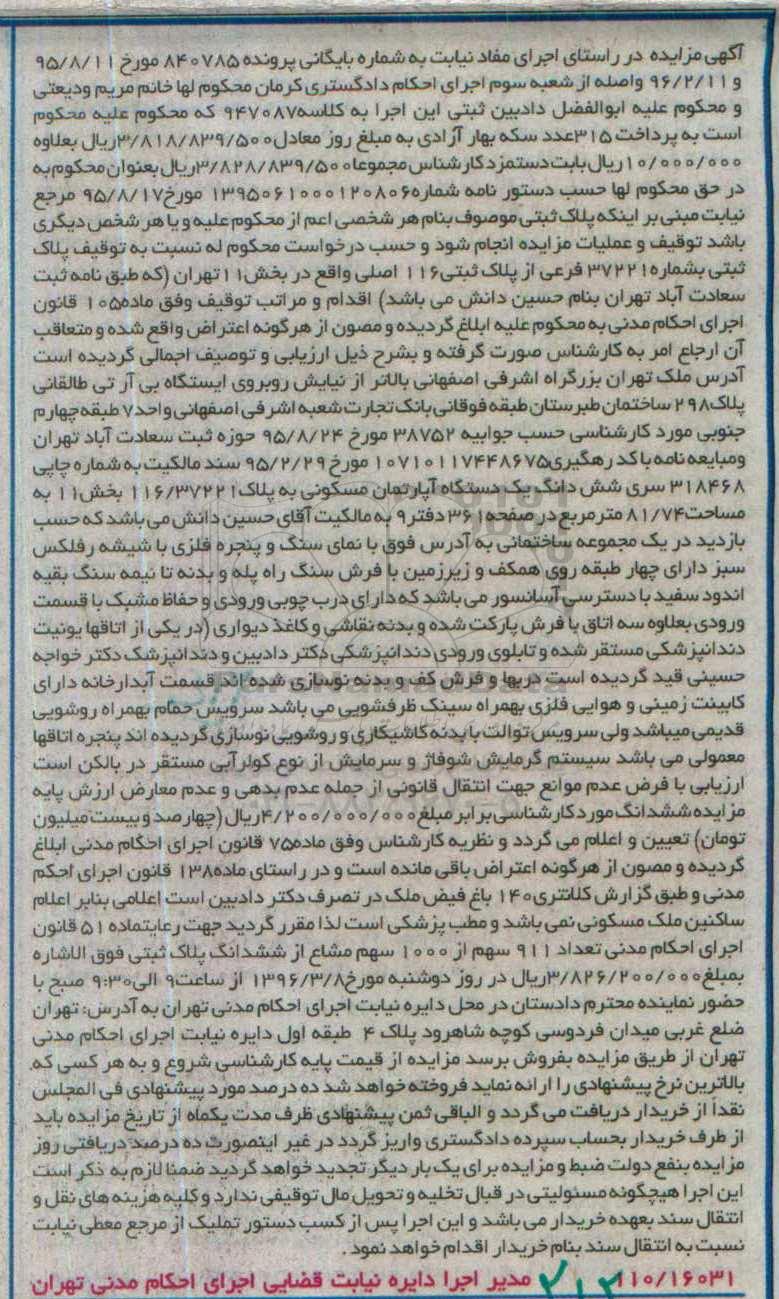 آگهی مزایده در راستای اجرای مفاد نیابت به شماره بایگانی پرونده ۸۴۰۷۸۵ مورخ ۹۵/۸/۱۱
و ۹۶/۲/۱۱ واصله از شعبه سوم اجرای احکام دادگستری کرمان محکوم لها خانم مریم ودیعتی
و محکوم علیه ابوالفضل دادبین ثبتی این اجرا به کلاسه ۹۴۷۰۸۷ که محکوم علیه محکوم
است به پرداخت ۳۱۵ عدد سکه بهار آزادی به مبلغ روز معادل ۳/۸۱۸/۸۳۹/۵۰۰ ریال بعلاوه
۱۰/۰۰۰/۰۰۰ ریال بابت دستمزد کارشناس مجموعا ۳/۸۲۸/۸۳۹/۵۰۰ ریال بعنوان محکوم به
در حق محکوم لها حسب دستور نامه شماره ۱۳۹۵۰۶۱۰۰۰۱۲۰۸۰۶ مورخ ۹۵/۸/۱۷ مرجع
نیابت مبنی بر اینکه پلاک ثبتی موصوف بنام هر شخصی اعم از محکوم علیه و یا هر شخص دیگری
باشد توقیف و عملیات مزایده انجام شود و حسب درخواست محکوم له نسبت به توقیف پلاک
ثبتی بشماره ۳۷۲۲۱ فرعی از پلاک ثبتی ۱۱۶ اصلی واقع در بخش ۱۱ تهران (که طبق نامه ثبت
سعادت آباد تهران بنام حسین دانش می باشد) اقدام و مراتب توقیف وفق ماده ۱۰۵ قانون
اجرای احکام مدنی به محکوم علیه ابلاغ گردیده و مصون از هرگونه اعتراض واقع شده و متعاقب
آن ارجاع امر به کارشناس صورت گرفته و بشرح ذیل ارزیابی و توصیف اجمالی گردیده است
آدرس ملک تهران بزرگراه اشرفی اصفهانی بالاتر از نیایش روبروی ایستگاه بی آر تی طالقانی
پلاک ۲۹۸ ساختمان طبرستان طبقه فوقانی بانک تجارت شعبه اشرفی اصفهانی واحد ۷ طبقه چهارم
جنوبی مورد کارشناسی حسب جوابیه ۳۸۷۵۲ مورخ ۹۵/۸/۲۴ حوزه ثبت سعادت آباد تهران
ومبایعه نامه با کد رهگیری ۱۰۷۱۰۱۱۷۴۴۸۶۷۵ مورخ ۹۵/۲/۲۹ سند مالکیت به شماره چاپی
۳۱۸۴۶۸ سری شش دانگ یک دستگاه آپارتمان مسکونی به پلاک ۱۱۶/۳۷۲۲۱ بخش ۱۱ به
مساحت ۸۱/۷۴ متر مربع در صفحه ۳۶۱ دفتر ۹ به مالکیت آقای حسین دانش می باشد که حسب
بازدید در یک مجموعه ساختمانی به آدرس فوق با نمای سنگ و پنجره فلزی با شیشه رفلکس
سبز دارای چهار طبقه روی همکف و زیرزمین با فرش سنگ راه پله و بدنه تا نیمه سنگ بقیه
اندود سفید با دسترسی آسانسور می باشد که دارای درب چوبی ورودی و حفاظ مشبک با قسمت
ورودی بعلاوه سه اتاق با فرش پارکت شده و بدنه نقاشی و کاغذ دیواری (در یکی از اتاقها یونیت
دندانپزشکی مستقر شده و تابلوی ورودی دندانپزشکی دکتر دادبین و دندانپزشک دکتر خواجه
حسینی قید گردیده است دربها و فرش کف و بدنه نوسازی شده اند قسمت آبدارخانه دارای
کابینت زمینی و هوایی فلزی بهمراه سینک ظرفشویی می باشد سرویس حمام بهمراه روشویی
قدیمی میباشد ولی سرویس توالت با بدنه کاشیکاری و روشویی نوسازی گردیده اند پنجره اتاقها
معمولی می باشد سیستم گرمایش شوفاژ و سرمایش از نوع کولرآبی مستقر در بالکن است
ارزیابی با فرض عدم موانع جهت انتقال قانونی از جمله عدم بدهی و عدم معارض ارزش پایه
مزایده ششدانگ مورد کارشناسی برابر مبلغ ۴/۲۰۰/۰۰۰/۰۰۰ ریال (چهارصد و بیست میلیون
تومان) تعیین و اعلام می گردد و نظریه کارشناس وفق ماده ۷۵ قانون اجرای احکام مدنی ابلاغ
گردیده و مصون از هرگونه اعتراض باقی مانده است و در راستای ماده ۱۳۸ قانون اجرای احکم
مدنی و طبق گزارش کلانتری ۱۴۰ باغ فیض ملک در تصرف دکتر دادبین است اعلامی بنابر اعلام
ساکنین ملک مسکونی نمی باشد و مطب پزشکی است لذا مقرر گردید جهت رعایتماده ۵۱ قانون
اجرای احکام مدنی تعداد ۹۱۱ سهم از ۱۰۰۰ سهم مشاع از ششدانگ پلاک ثبتی فوق الاشاره
بمبلغ ۳/۸۲۶/۲۰۰/۰۰۰ ریال در روز دوشنبه مورخ ۱۳۹۶/۳/۸ از ساعت ۹ الی ۹:۳۰ صبح با
حضور نماینده محترم دادستان در محل دایره نیابت اجرای احکام مدنی تهران به آدرس: تهران
ضلع غربی میدان فردوسی کوچه شاهرود پلاک ۴ طبقه اول دایره نیابت اجرای احکام مدنی
تهران از طریق مزایده بفروش برسد مزایده از قیمت پایه کارشناسی شروع و به هر کسی که
بالاترین نرخ پیشنهادی را ارائه نماید فروخته خواهد شد ده درصد مورد پیشنهادی فی المجلس
نقداً از خریدار دریافت می گردد و الباقی ثمن پیشنهادی ظرف مدت یکماه از تاریخ مزایده باید
از طرف خریدار بحساب سپرده دادگستری واریز گردد در غیر اینصورت ده درصد دریافتی روز
مزایده بنفع دولت ضبط و مزایده برای یک بار دیگر تجدید خواهد گردید ضمنا لازم به ذکر است
این اجرا هیچگونه مسئولیتی در قبال تخلیه و تحویل مال توقیفی ندارد و کلیه هزینه های نقل و
انتقال سند بعهده خریدار می باشد و این اجرا پس از کسب دستور تملیک از مرجع معطی نیابت
نسبت به انتقال سند بنام خریدار اقدام خواهد نمود .
۱۱۰/۱۶۰۳۱ مدیر اجرا دایره نیابت قضایی اجرای احکام مدنی تهران